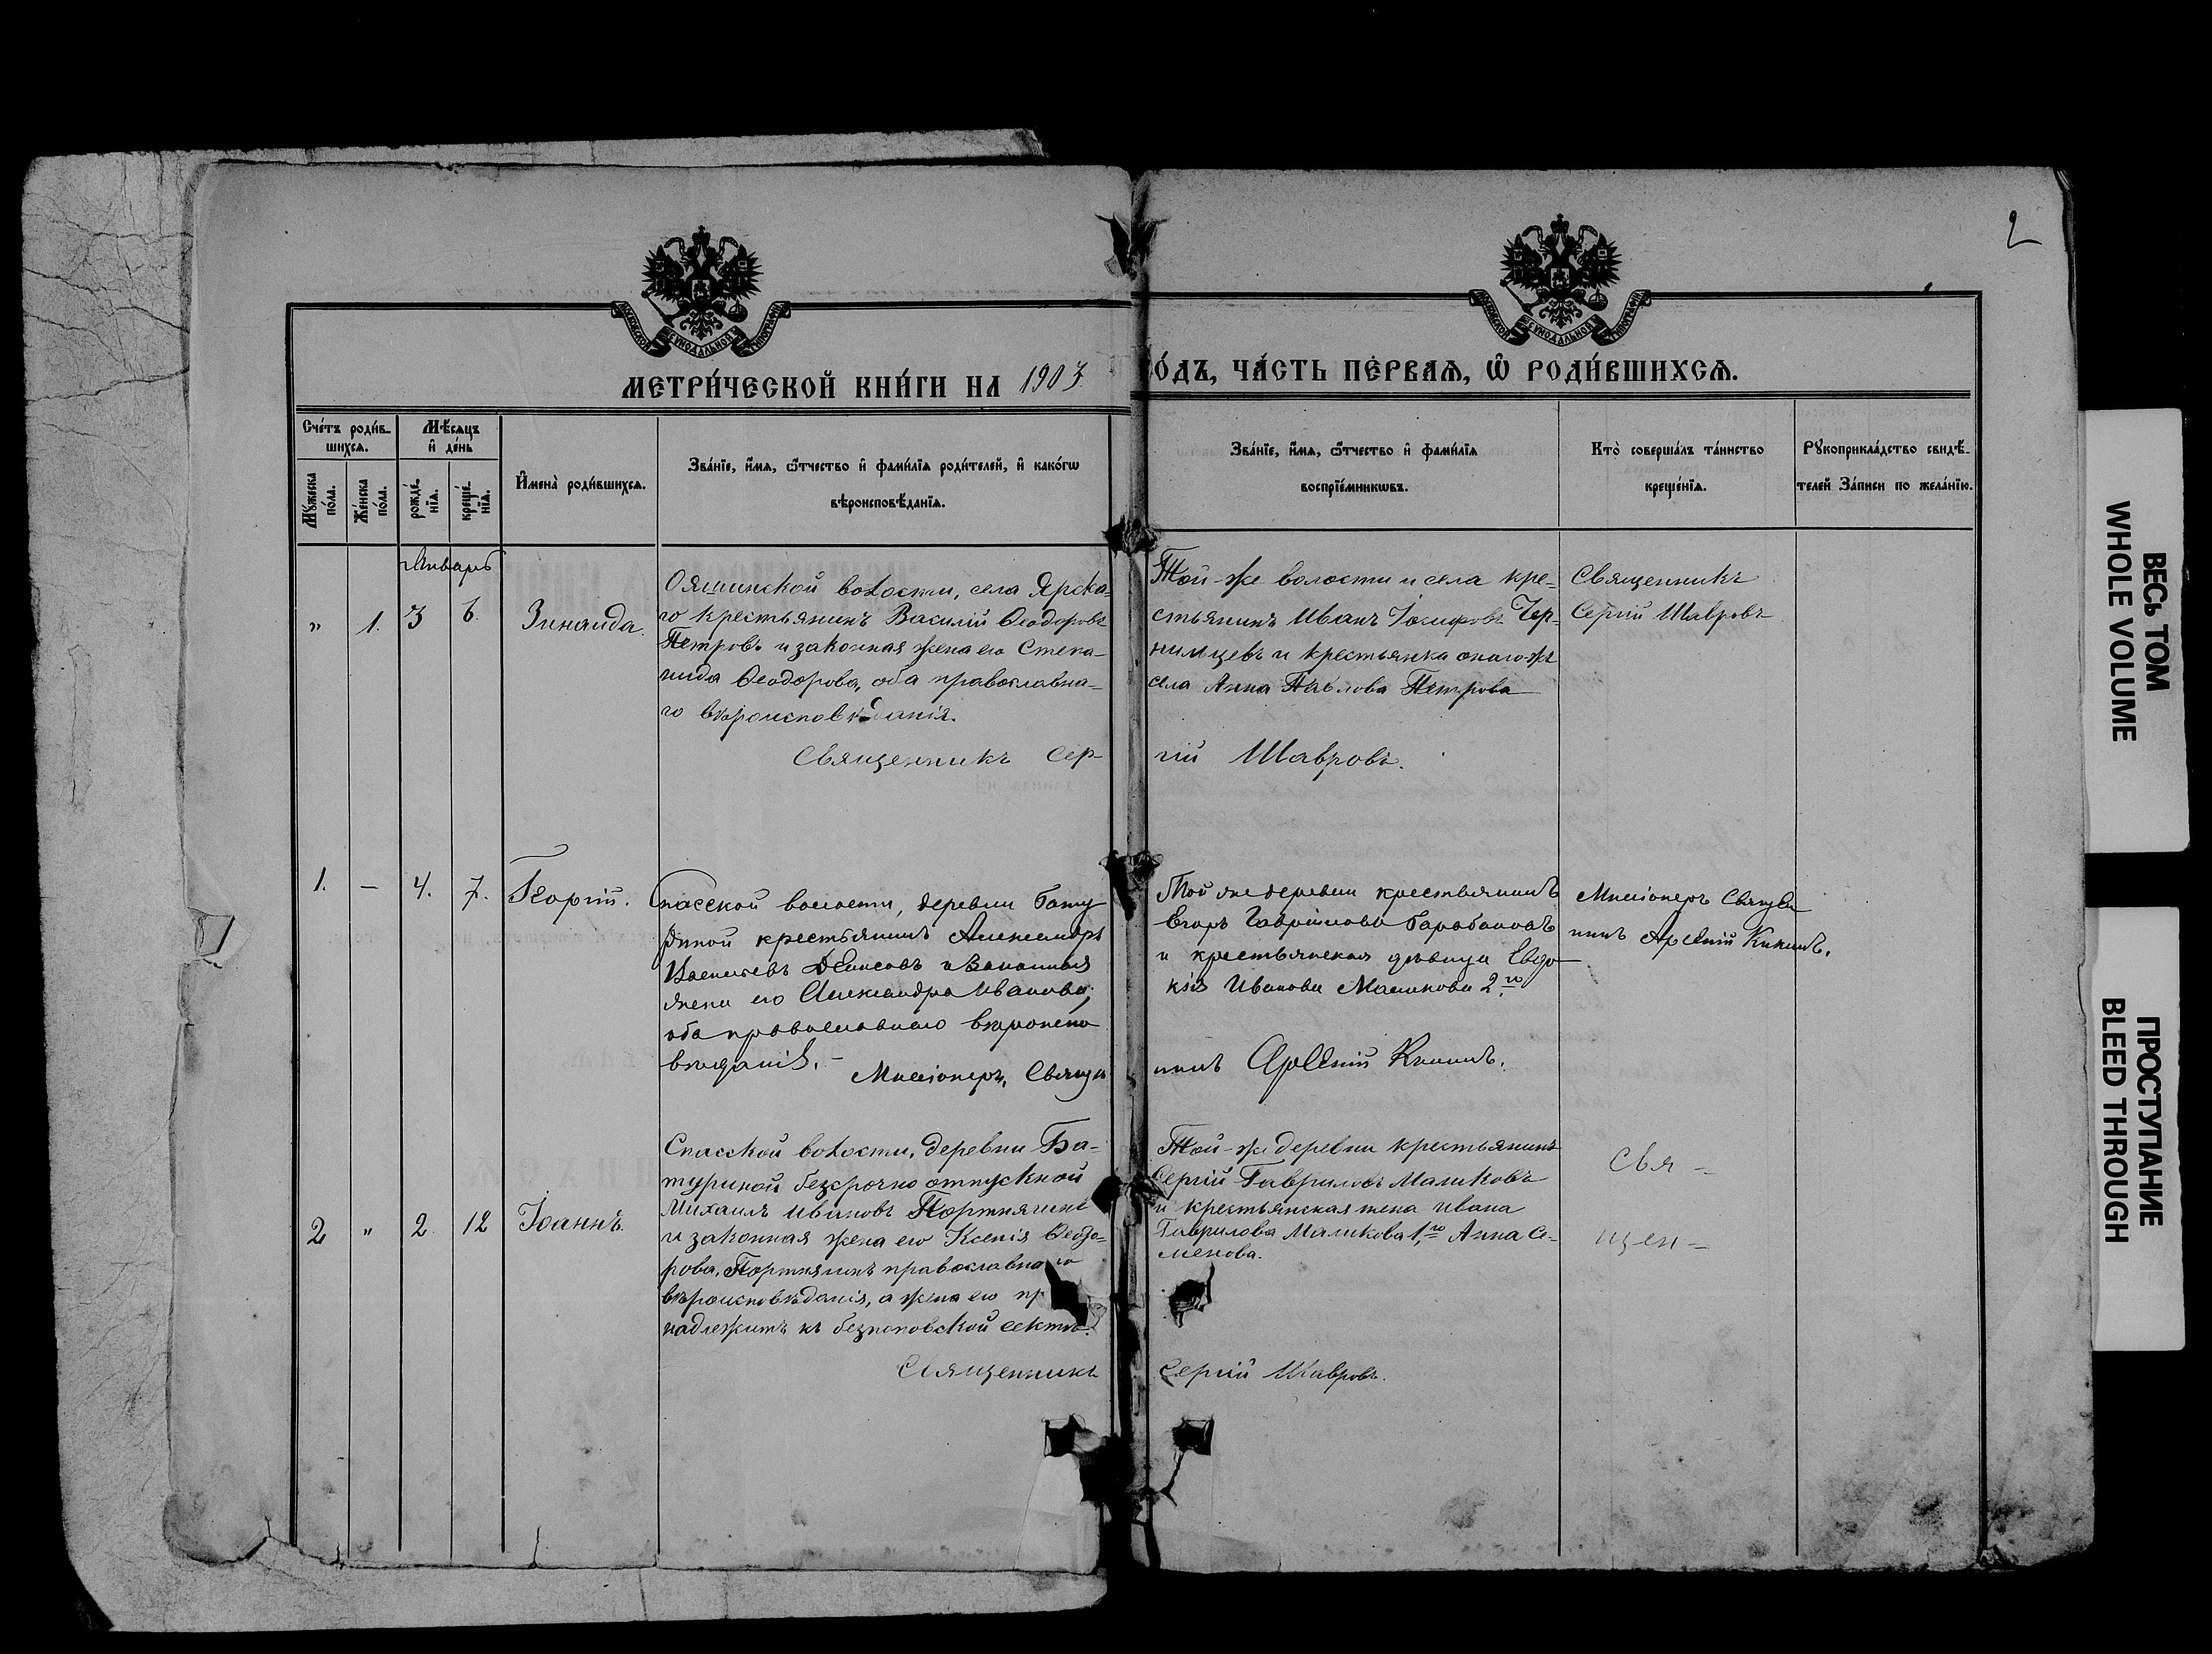 2
МОСКОВСКОЙ СѴНОДАЛЬНОЙ ТИПОГРАФІИ
МОСКОВСКОЙ СѴНОДАЛЬНОЙ ТИПОГРАФІИ
МЕТРИ́ЧЕСКОЙ КНИ́ГИ НА 1903
О́ДЪ, ЧА́СТЬ ПЕ́РВАѦ, Ѡ҆ РОДИ́ВШИХСѦ.
Сче́тъ роди́в-
шихсѧ.
Мꙋ́жеска по́ла.
Же́нска по́ла.
Мѣ́сѧцъ
и҆ де́нь
рожде́-
нїѧ.
креще́-
нїѧ.
И҆мена̀ роди́вшихсѧ.
Зва́нїе, и҆́мѧ, ѻ҆́тчество и҆ фамі́лїѧ роди́телей, и҆ како́гѡ
вѣроисповѣ́данїѧ.
Зва́нїе, и҆́мѧ, ѻ҆́тчество и҆ фамі́лїѧ
воспрїе́мникѡвъ.
Кто̀ соверша́лъ та́инство
креще́нїѧ.
Рꙋкоприкла́дство свидѣ́-
телей За́писи по жела́нїю.
Январь
" 1. 3 6. Зинаида.
Ояшинской волости, села Ярска-
го крестьянинъ Василій Ѳеодоровъ
Петровъ и законная жена его Степа-
нида Ѳеодорова, оба православна-
го вѣроисповѣданія.
Священникъ Сер-
Той-же волости и села кре-
стьянинъ Иванъ Іосифовъ Чер-
нимцевъ и крестьянка онаго-же
села Анна Павлова Петрова
гій Шавровъ.
Священникъ
Сергій Шавровъ
1. — 4. 7. Георгій.
Спасской волости, деревни Бату
риной крестьянинъ Александръ
Васильевъ Денисовъ и Законная
жена его Александра Иванова,
оба православнаго вѣроиспо
вѣданія. —
Миссіонеръ, Священ
Той же деревни крестьянинъ
Егоръ Гавриловъ Барабановъ
и крестьянская дѣвица Евдо
кія Иванова Маликова 2го
никъ Арсеній Кикинъ.
Миссіонеръ Священ
никъ Арсеній Кикинъ.
2 " 2. 12 Іоаннъ.
Спасской волости, деревни Ба-
туриной безсрочно отпускной
Михаилъ Ивановъ Портнягинъ
и законная жена его Ксенія Ѳеодо-
рова, Портнягинъ православнаго
вѣроисповѣданія, а жена его пр
надлежитъ къ безпоповской сектѣ.
Священникъ
Той-же деревни крестьянинъ
Сергій Гавриловъ Маликовъ
и крестьянская жена Ивана
Гаврилова Маликова 1го Анна Се-
менова.
Сергій Шавровъ.
Свя-
щен-
ВЕСЬ ТОМ
WHOLE VOLUME
ПРОСТУПАНИЕ
BLEED THROUGH